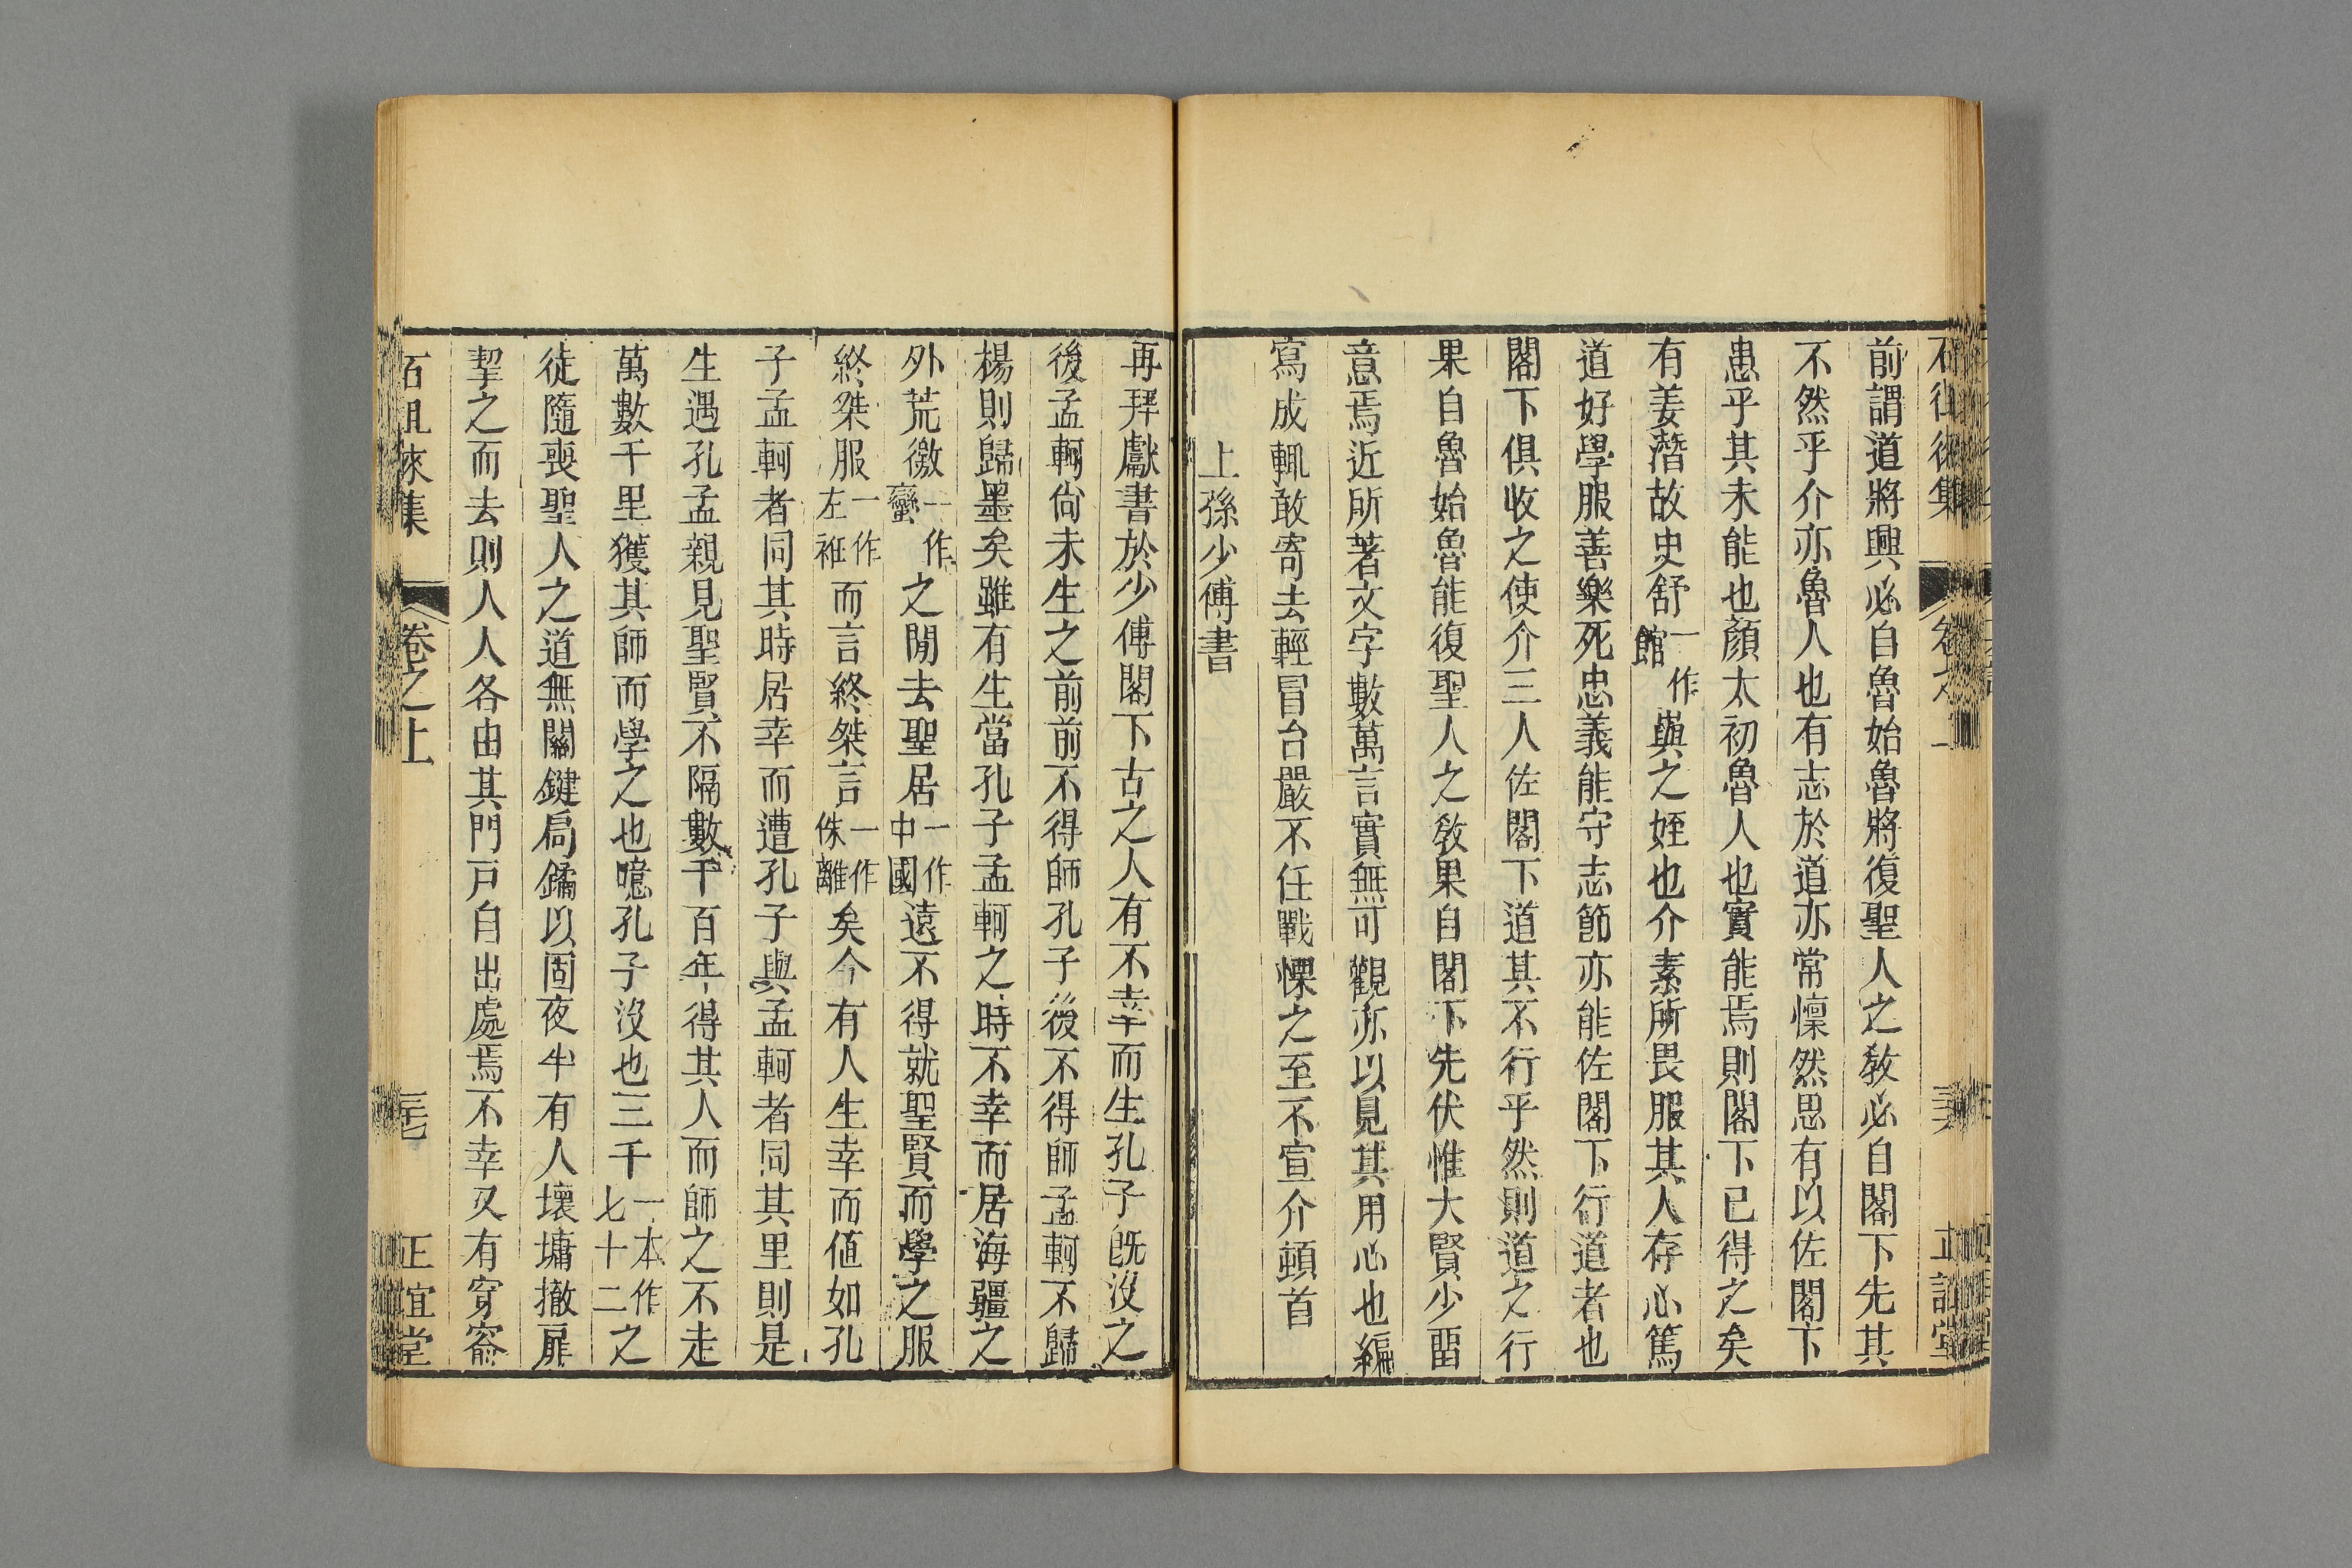 前謂道將興必自魯始魯將復聖人之敎必自閣下先其
不然乎介亦魯人也有志於道亦常懍然思有以佐閣下
患乎其未能也顏太初魯人也實能焉則閣下已得之矣
有姜潛故史舒一作館與之姪也介素所畏服其人存心篤
道好學服善樂死忠義能守志節亦能佐閣下行道者也
閣下俱收之使介三人佐閣下道其不行乎然則道之行
果自魯始魯能復聖人之敎果自閣下先伏惟大賢少畱
意焉近所著文字數萬言實無可觀亦以見其用心也編
寫成輒敢寄去輕冒台嚴不任戰慄之至不宣介頓首
上孫少傅書
再拜獻書於少傅閣下古之人有不幸而生孔子旣沒之
後孟軻尙未生之前前不得師孔子後不得師孟軻不歸
楊則歸墨矣雖有生當孔子孟軻之時不幸而居海疆之
外荒徼一作蠻之閒去聖居一作中國遠不得就聖賢而學之服
終桀服一作左袵而言終桀言一作侏離矣今有人生幸而値如孔
子孟軻者同其時居幸而遭孔子與孟軻者同其里則是
生遇孔孟親見聖賢不隔數千百年得其人而師之不走
萬數千里獲其師而學之也噫孔子沒也三千一本作七十二之
徒隨喪聖人之道無關鍵扃鐍以固夜半有人壞墉撤扉
挈之而去則人人各由其門戸自出處焉不幸又有穿窬
石徂徠集 卷之上 三七 正誼堂